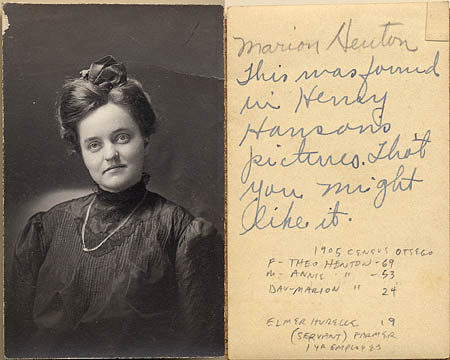 Marion Henton
This was found
in Henry
Hanson's
pictures. Thot
you might
like it.
1905 CENSUS OTSEGO
F- THEO HENTON -69
M- ANNIE " -53
DAU-MARION " 24
ELMER 19
(SERVANT) FARMER
1 YR EMPLOYED